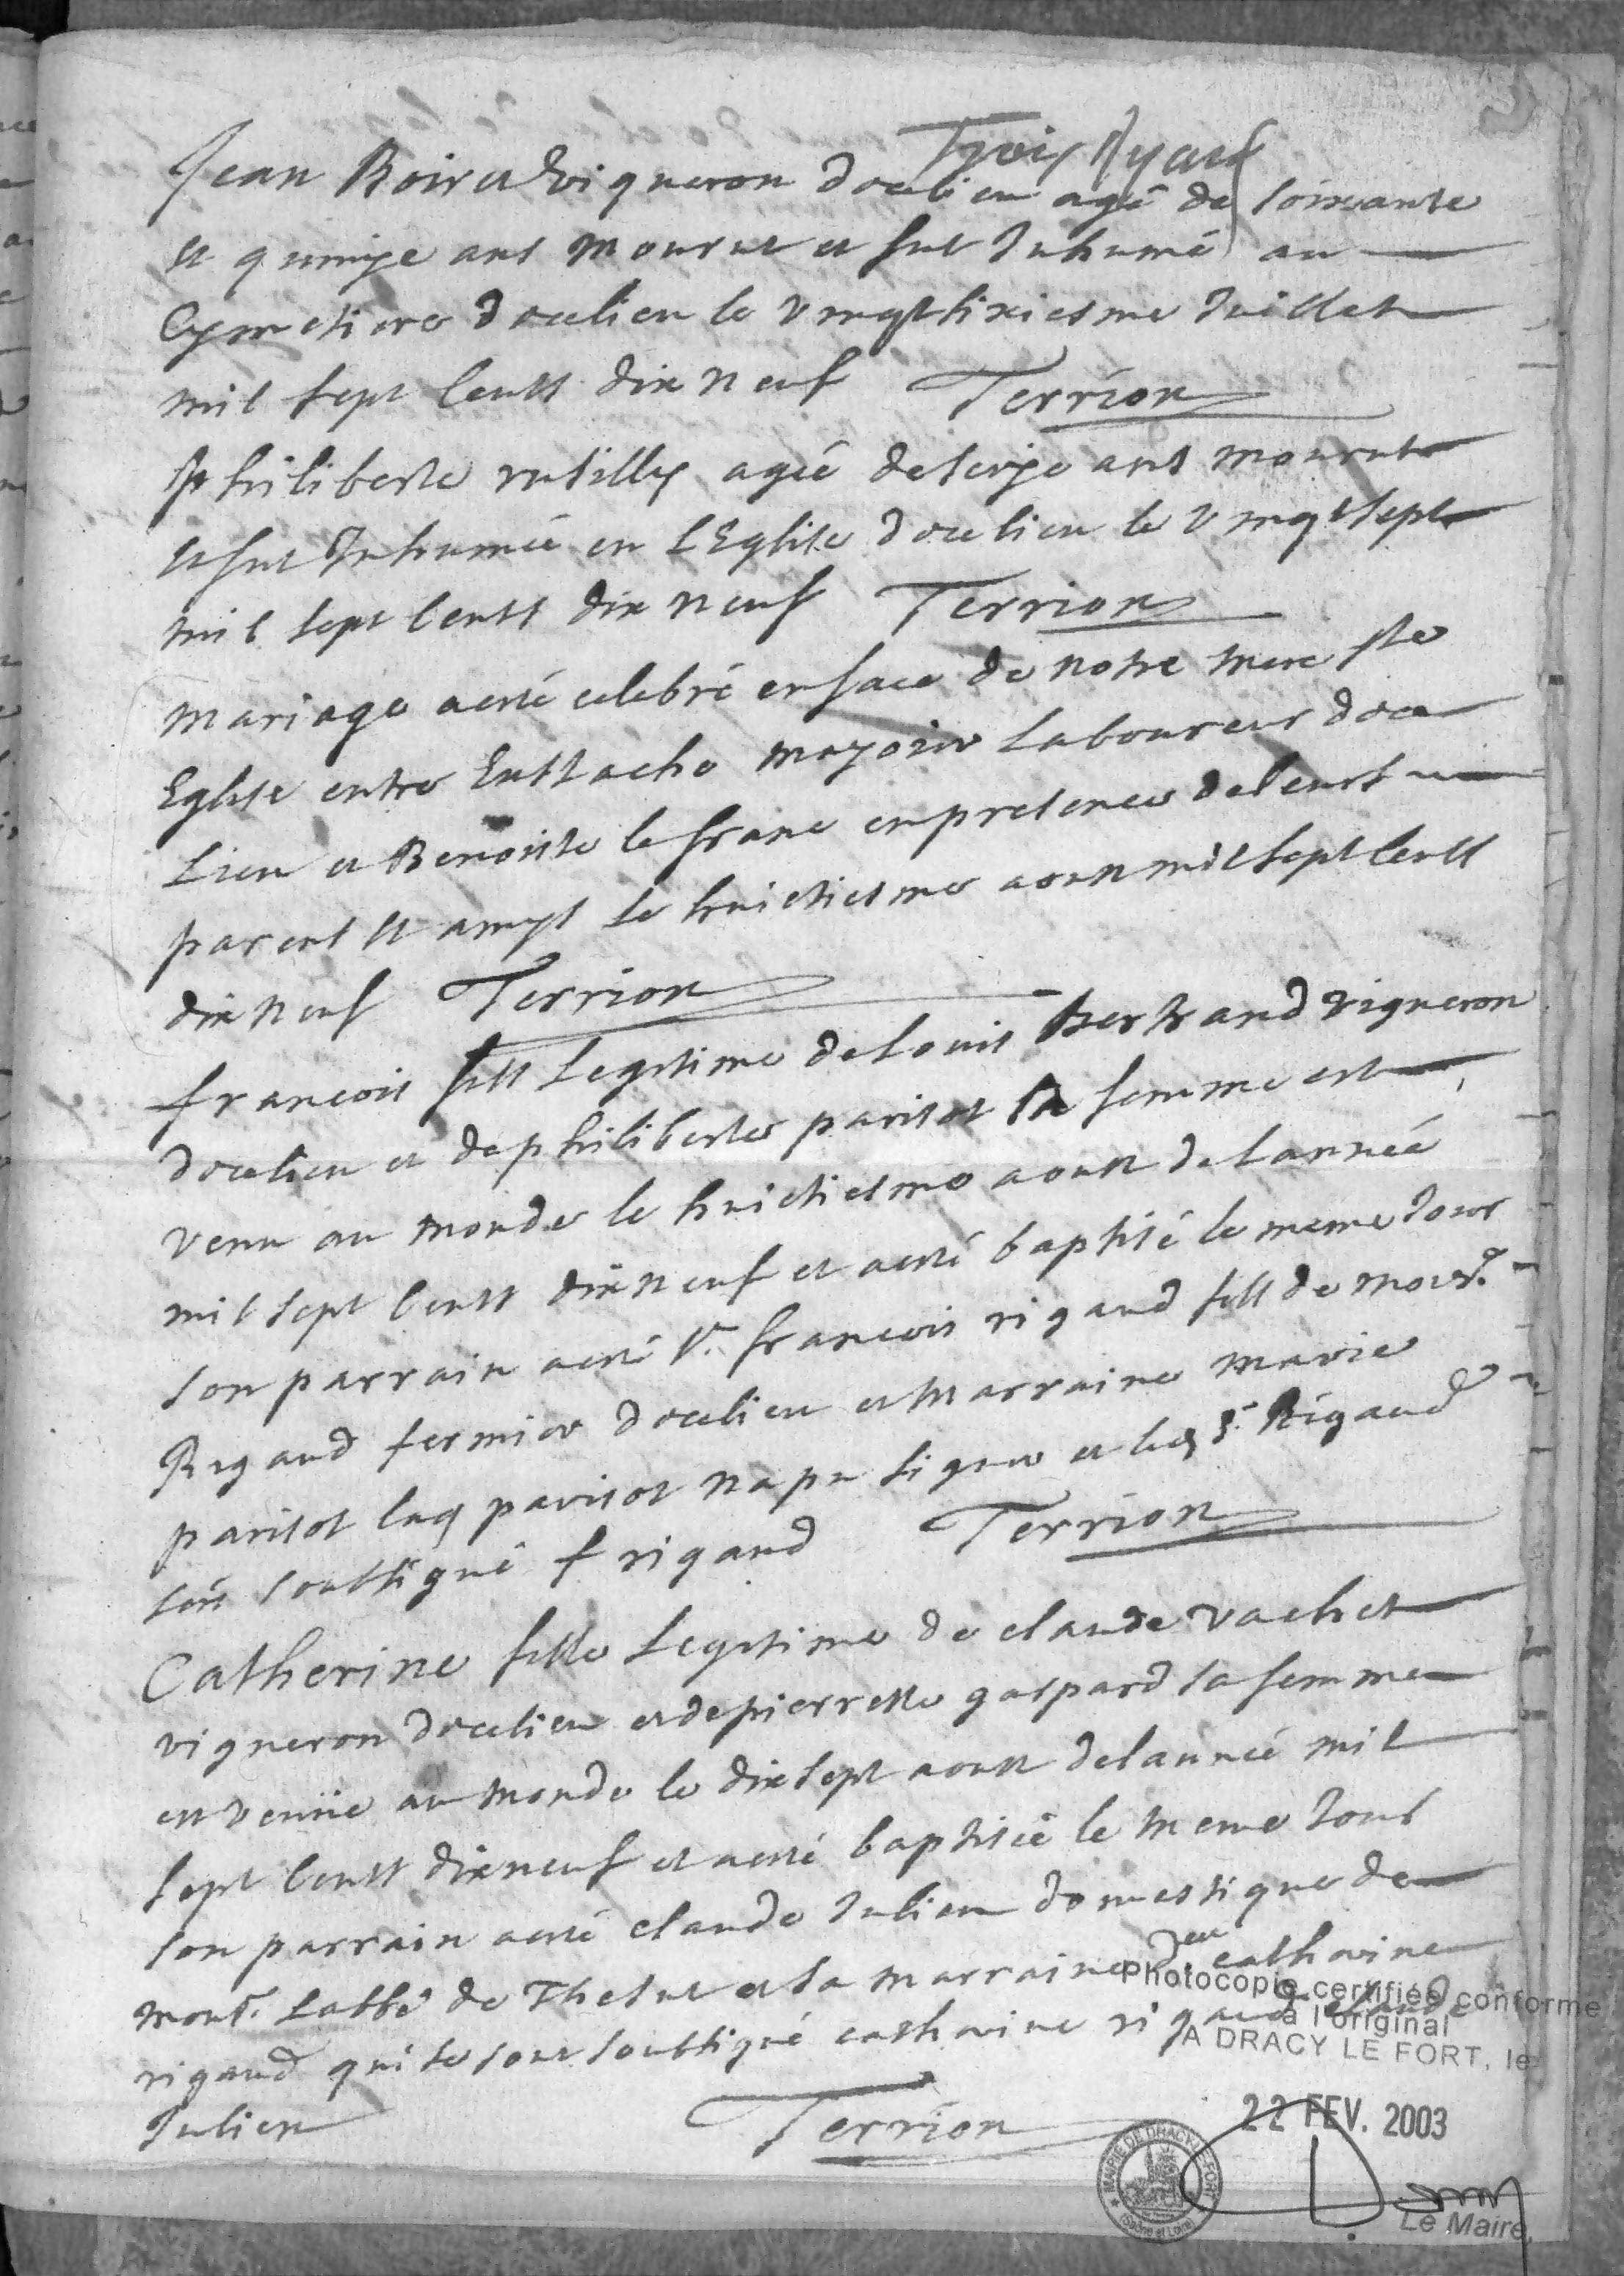 Jean Boiret vigneron docelieu agé de soixante
et quinze ans mourut et fut Inhumé au
Cymetiere docelieu le vingtsixiesme Juillet
mil sept Centt dix neuf Terrion
philiberte rutilly agéé deseize ans mourut
et fut Inhuméé en LEglise docelieu le vingt sept
mil sept Centt dix neuf Terrion
mariage aesté celebré en face de notre mere ste
Eglise entre Eusttache Laboureur doce
Lieu et Benoiste lefranc enpresence deleurs
parens et amys le huictiesme aoust mil sept Centt
dix neuf Terrion
francois fills Legitime delouis Bertrand vigneron
docelieu et dephiliberte parisot sa femme est
venu au monde le huictiesme aoust delannéé
mil sept Centt dix neuf et aesté baptisé le meme Jour
son parrain aesté sr. francois rigaud fills de
Rigaud fermier docelieu et marraine marie
parisot laq parisot napu signer et led sr. Rigaud
sest soubsigné f rigaud Terrion
Catherine fille Legitime de claude vachet
vigneron docelieu et depierrette gaspard sa femme
est venüe au monde le dixsept aoust delannéé mil
sept Centt dixneuf et aesté baptiséé le meme Jour
son parrain aesté claude Julien domestique de
monsr. Labbé de Thesut et sa marraine delle catherine
rigaud qui se sont soubsigné catherine rigaud claude
Julien Terrion
Photocopie certifiée conforme
à l'original
A DRACY LE FORT, le
22 FEV. 2003
MAIRIE DE DRACY-LE-FORT
(Saône et Loire)
Le Maire,